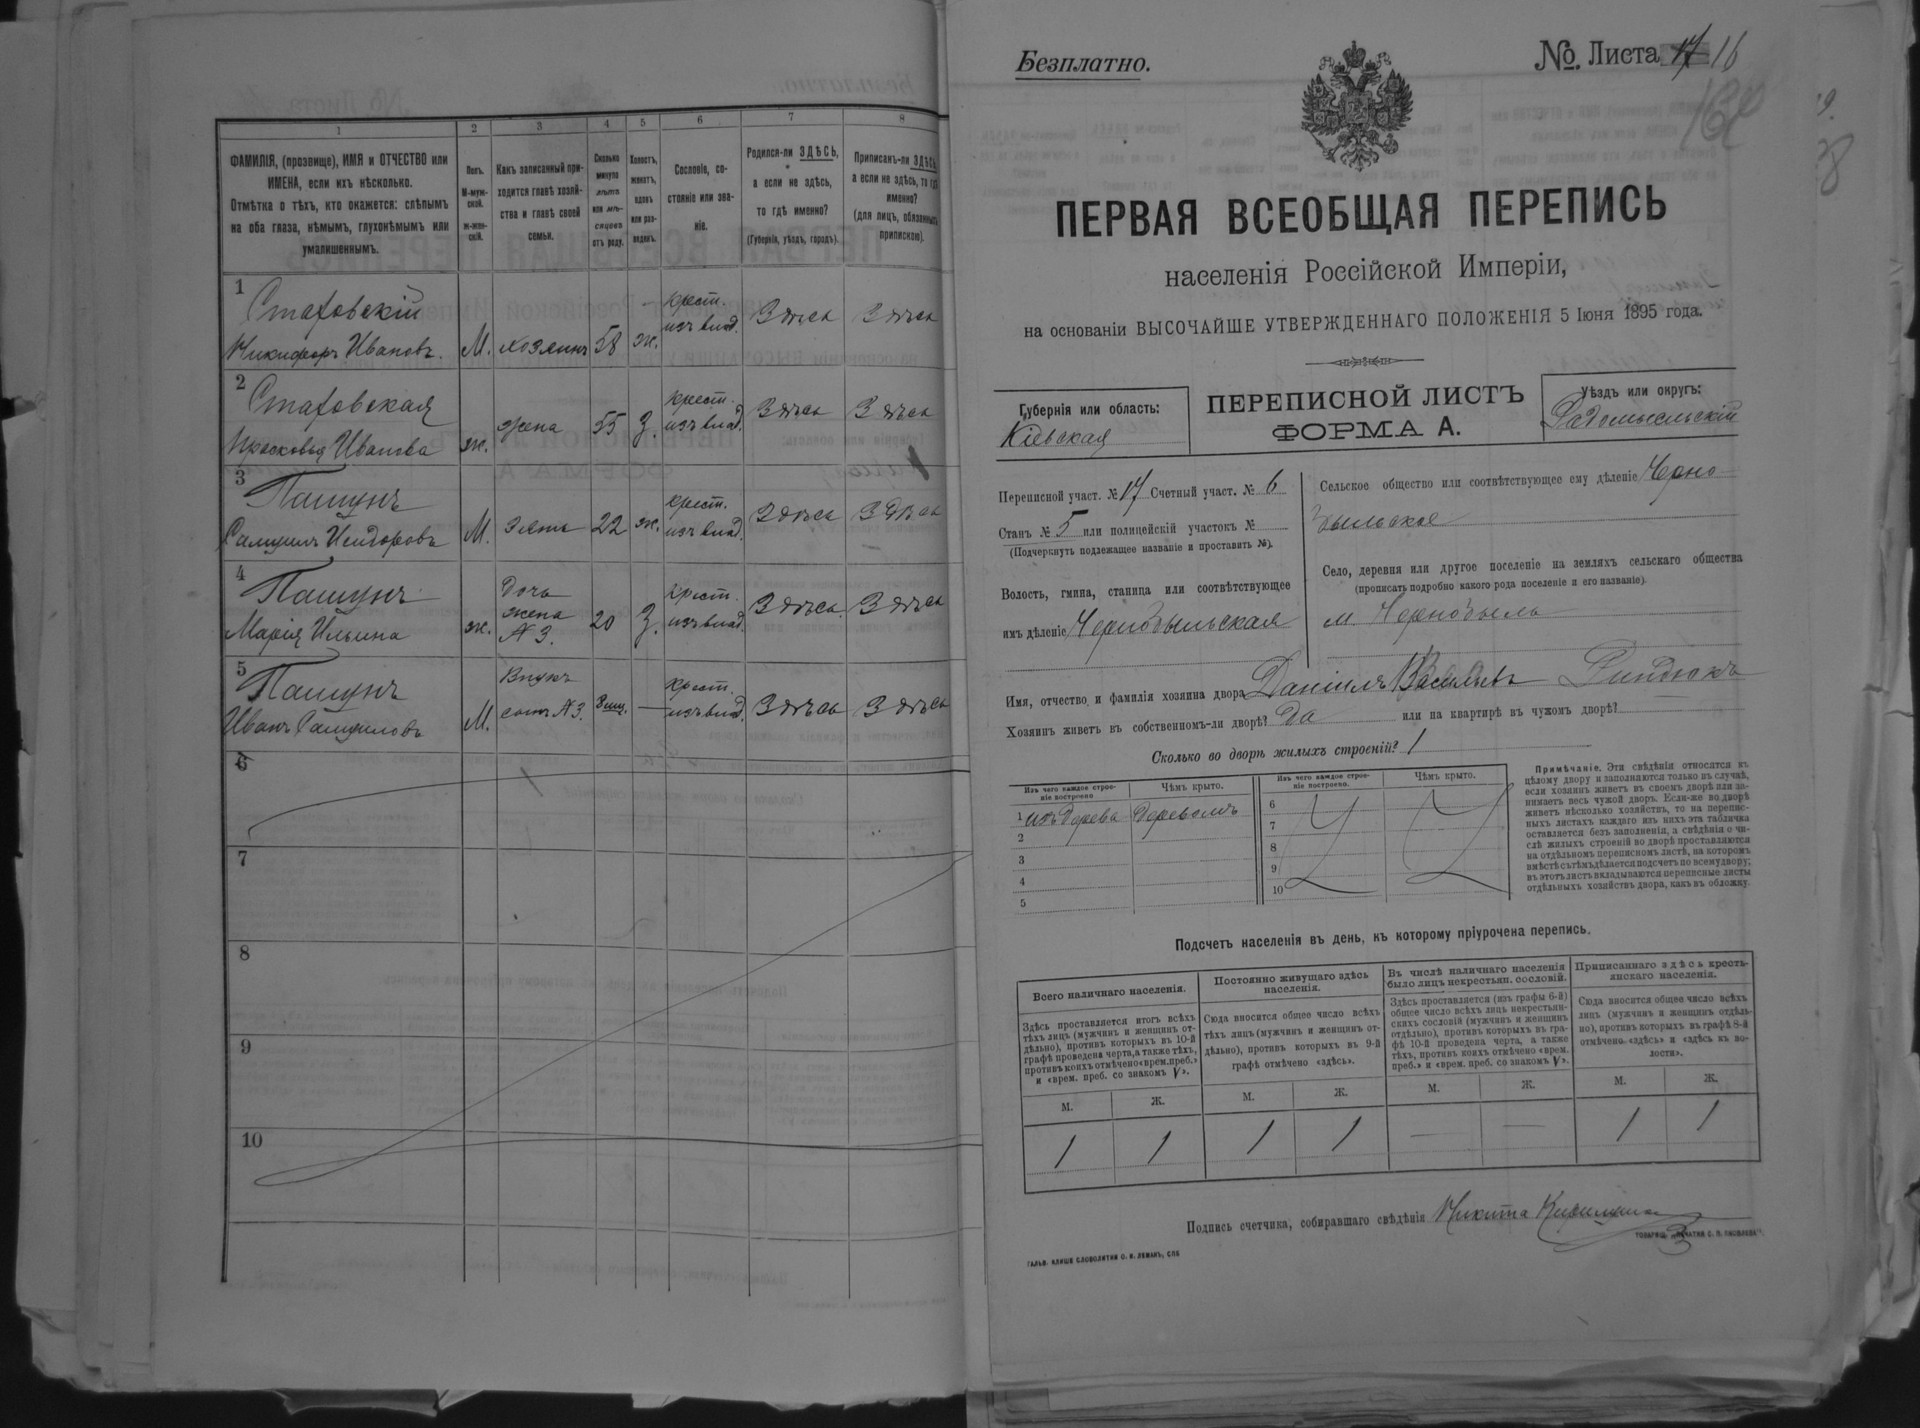 1
2
3
4
5
6
7
8
ФАМИЛІЯ, (прозвище), ИМЯ и ОТЧЕСТВО или
ИМЕНА, если ихъ нѣсколько.
Отмѣтка о тѣхъ, кто окажется: слѣпымъ
на оба глаза, нѣмымъ, глухонѣмымъ или
умалишеннымъ.
Полъ.
М-муж-
ской.
ж-жен-
скій.
Какъ записанный при-
ходится главѣ хозяй-
ства и главѣ своей
семьи.
Сколько
минуло
лѣтъ
или мѣ-
сяцевъ
отъ роду.
Холостъ,
женатъ,
вдовъ
или раз-
веденъ.
Сословіе, со-
стояніе или зва-
ніе.
Родился-ли ЗДѢСЬ,
а если не здѣсь,
то гдѣ именно?
(Губернія, уѣздъ, городъ).
Приписанъ-ли ЗДѢСЬ,
а если не здѣсь, то гдѣ
именно?
(для лицъ, обязанныхъ
припискою).
1
Стаховскій
Никифоръ Ивановъ.
М.
хозяинъ
58
ж.
крест.
изъ влад.
Здѣсь
Здѣсь
2
Стаховская
Прасковья Иванова
ж.
жена
55
З.
крест.
изъ влад.
Здѣсь
Здѣсь
3
Пашунъ
Самуилъ Исидоровъ
М.
зять
22
ж.
крест.
изъ влад.
Здѣсь
Здѣсь
4
Пашунъ
Марія Ильина
ж.
дочь
жена
№ 3.
20
З.
крест.
изъ влад.
Здѣсь
Здѣсь
5
Пашунъ
Иванъ Самуиловъ
М.
Внукъ
сынъ № 3.
—
крест.
изъ влад.
Здѣсь
Здѣсь
6
7
8
9
10
Безплатно.
№. Листа 17 16
ПЕРВАЯ ВСЕОБЩАЯ ПЕРЕПИСЬ
населенія Россійской Имперіи,
на основаніи ВЫСОЧАЙШЕ УТВЕРЖДЕННАГО ПОЛОЖЕНІЯ 5 Іюня 1895 года.
Губернія или область:
Кіевская
ПЕРЕПИСНОЙ ЛИСТЪ
ФОРМА А.
Уѣздъ или округъ:
Радомысльскій
Переписной участ. № 17 Счетный участ. № 6
Станъ № 5 или полицейскій участокъ №
(Подчеркнуть подлежащее названіе и проставить №).
Волость, гмина, станица или соотвѣтствующее
имъ дѣленіе Чернобыльская
Сельское общество или соотвѣтствующее ему дѣленіе Черно-
быльское
Село, деревня или другое поселеніе на земляхъ сельскаго общества
(прописать подробно какого рода поселеніе и его названіе).
м. Чернобыль
Имя, отчество и фамилія хозяина двора Даніилъ Васильевъ
Хозяинъ живетъ въ собственномъ-ли дворѣ? Да или на квартирѣ въ чужомъ дворѣ?
Сколько во дворѣ жилыхъ строеній? 1
Изъ чего каждое строе-
ніе построено
Чѣмъ крыто.
Изъ чего каждое строе-
ніе построено.
Чѣмъ крыто.
1 изъ дерева деревомъ
2
3
4
5
6
7
8
9
10
Примѣчаніе. Эти свѣдѣнія относятся къ
цѣлому двору и заполняются только въ случаѣ,
если хозяинъ живетъ въ своемъ дворѣ или за-
нимаетъ весь чужой дворъ. Если-же во дворѣ
живетъ нѣсколько хозяйствъ, то на перепис-
ныхъ листахъ каждаго изъ нихъ эта табличка
оставляется безъ заполненія, а свѣдѣнія о чи-
слѣ жилыхъ строеній во дворѣ проставляются
на отдѣльномъ переписномъ листѣ, на которомъ
вмѣстѣ съ тѣмъ дѣлается подсчетъ по всему двору;
въ этотъ листъ вкладываются переписные листы
отдѣльныхъ хозяйствъ двора, какъ въ обложку.
Подсчетъ населенія въ день, къ которому пріурочена перепись.
Всего наличнаго населенія.
Здѣсь проставляется итогъ всѣхъ
тѣхъ лицъ (мужчинъ и женщинъ от-
дѣльно), противъ которыхъ въ 10-й
графѣ проведена черта, а также тѣхъ,
противъ коихъ отмѣчено «врем. преб.»
и «врем. преб. со знакомъ V».
Постоянно живущаго здѣсь
населенія.
Сюда вносится общее число всѣхъ
тѣхъ лицъ (мужчинъ и женщинъ от-
дѣльно), противъ которыхъ въ 9-й
графѣ отмѣчено «здѣсь».
Въ числѣ наличнаго населенія
было лицъ некрестьян. сословій.
Здѣсь проставляется (изъ графы 6-й)
общее число всѣхъ лицъ некрестьян-
скихъ сословій (мужчинъ и женщинъ
отдѣльно), противъ которыхъ въ гра-
фѣ 10-й проведена черта, а также
тѣхъ, противъ коихъ отмѣчено «врем.
преб.» и «врем. преб. со знакомъ V».
Приписаннаго здѣсь кресть-
янскаго населенія.
Сюда вносится общее число всѣхъ
лицъ (мужчинъ и женщинъ отдѣль-
но), противъ которыхъ въ графѣ 8-й
отмѣчено «здѣсь» и «здѣсь къ во-
лости».
М. Ж. М. Ж. М. Ж. М. Ж.
1 1 1 1 — — 1 1
Подпись счетчика, собиравшаго свѣдѣнія Никита
ГАЛЬВ. КЛИШЕ СЛОВОЛИТНИ О. И. ЛЕМАНЪ, СПБ
ТОВАРИЩ. „ПЕЧАТНЯ С. П. ЯКОВЛЕВА“